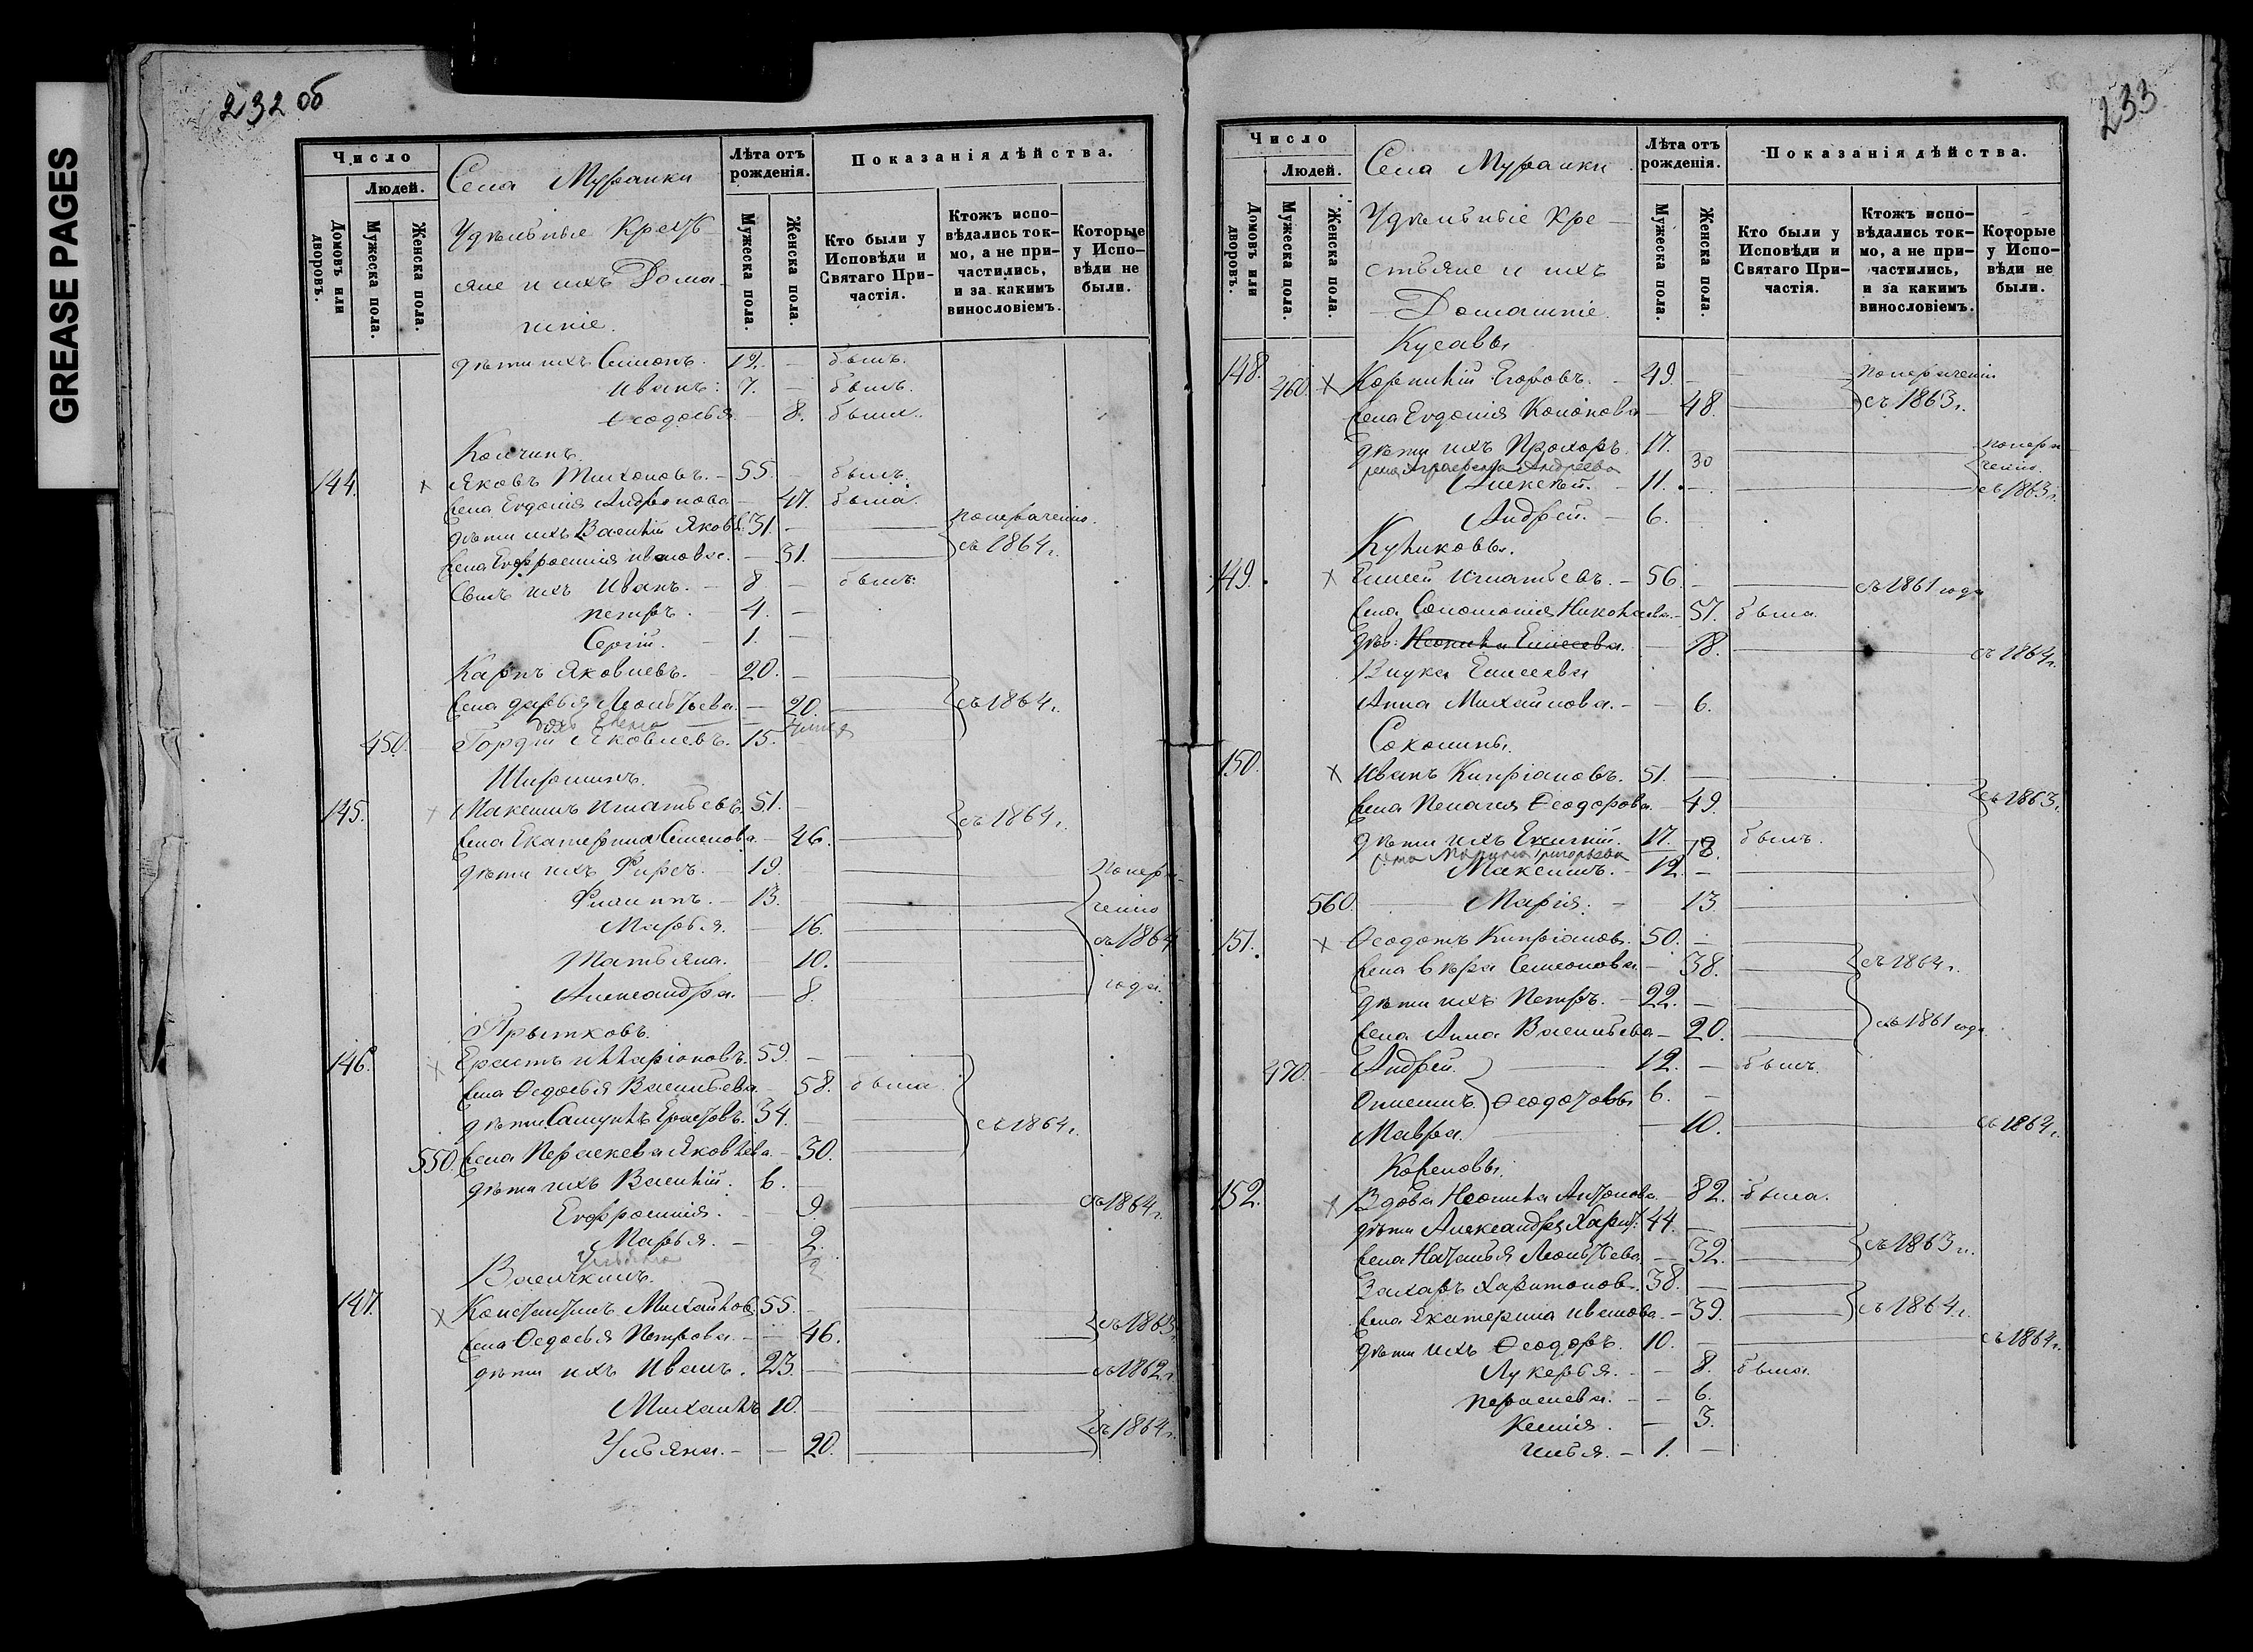 GREASE PAGES
232 об
Число
Людей.
Домовъ или дворовъ.
Мужеска пола.
Женска пола.
Села Муранки
Удѣльные Крестья
яне и ихъ Дома-
шніе.
Лѣта отъ рожденія.
Мужеска пола.
Женска пола.
Показанія дѣйства.
Кто были у Исповѣди и Святаго Причастія.
Ктожъ исповѣдались токмо, а не причастились, и за какимъ винословіемъ.
Которые у Исповѣди не были.
дѣти ихъ Симонъ. 12. – былъ.
Иванъ. 7. – былъ.
Ѳеодосья – 8. была.
Колчинъ.
144. х Яковъ Тихоновъ. – 55. – былъ.
жена Евдокія Андронова – 47. была.
дѣти ихъ Василій Яковл. 31. – по нераченію
жена Евфросинія Иванова. – 31. съ 1864 г.
Сынъ ихъ Иванъ. – 8 – былъ.
Петръ. – 4. –
Сергій. – 1. –
Карпъ Яковлевъ. – 20. –
жена Дарья Леонтьева. – 20. съ 1864 г.
дочь Елена
450. Гордій Яковлевъ. 15. –
Ширшинъ.
145. х Максимъ Игнатьевъ. 51. –
съ 1864 г.
жена Екатерина Семенова – 46.
дѣти ихъ Фирсъ. – 19. – По нера-
Филиппъ. – 13. ченію
Марья. – 16. съ 1864
Татьяна. – 10.
Александра. – 8. года.
Прытковъ.
146. х Ерастъ Илларіоновъ. 59. –
жена Ѳедосья Васильева. – 58. была.
дѣти Самуилъ Ерастовъ. 34. съ 1864 г.
550. жена Параскева Яковлева. – 30.
дѣти ихъ Василій. 6. –
Евфросинія. – 9. съ 1864 г.
Марья. – 2.
Ульяна 2
Васичкинъ.
147. х Константинъ Михайлов. 55. –
жена Ѳедосья Петрова. – 46. съ 1863 г.
дѣти ихъ Иванъ. 23. – съ 1862 г.
Михаилъ 10.
Ульяна. – – 20. съ 1864 г.
233
Число
Людей.
Домовъ или дворовъ.
Мужеска пола.
Женска пола.
Села Муранки
Удѣльные кре-
стьяне и ихъ
Домашніе.
Лѣта отъ рожденія.
Мужеска пола.
Женска пола.
Показанія дѣйства.
Кто были у Исповѣди и Святаго Причастія.
Ктожъ исповѣдались токмо, а не причастились, и за какимъ винословіемъ.
Которые у Исповѣди не были.
Кусавы
148. 460. х Корнилій Егоровъ. – 49. – По нераченію
жена Евдокія Кононова – 48. съ 1863 г.
дѣти ихъ Прохоръ. 17. по нера
жена Аграфена Андреева 30 ченію
Алексѣй. – 11. – съ 1863 г.
Андрей. – 6.
Куликовы.
149. х Елисей Игнатьевъ. – 56. – съ 1861 года
жена Соломонія Николаева. – 57. была.
дѣв. Неонила Елисеева. – 18. съ 1864 г.
Внука Елисеева
Анна Михайлова. – – 6.
Соколины.
150. х Иванъ Кипріановъ. 51. –
жена Пелагея Ѳеодорова. 49. съ 1863 г.
дѣти ихъ Евгеній. 17. былъ.
жена Марина Григорьева 18.
Максимъ. – 12. –
560. Марія. – 13.
151. х Ѳеодотъ Кипріанов. 50. –
жена Вѣра Семенова. – 38. съ 1864 г.
дѣти ихъ Петръ. – 22. –
жена Анна Васильева – 20. съ 1861 года
470. Андрей. 12. – былъ.
Онисимъ. Ѳеодотовы 6. –
Мавра. 10. съ 1864 г.
152. х Вдова Неонила Антонова – 82. была.
дѣти Александръ Харит. 44. –
жена Наталья Леонтьева. – 32. съ 1863 г.
Захаръ Харитонов. 38. –
жена Екатерина Иванова. – 39. съ 1864 г.
дѣти ихъ Ѳеодоръ. 10. – съ 1864 г.
Лукерья. – 8. была.
Параскева. – – 6.
Ксенія. – 3.
Илья. – 1. –